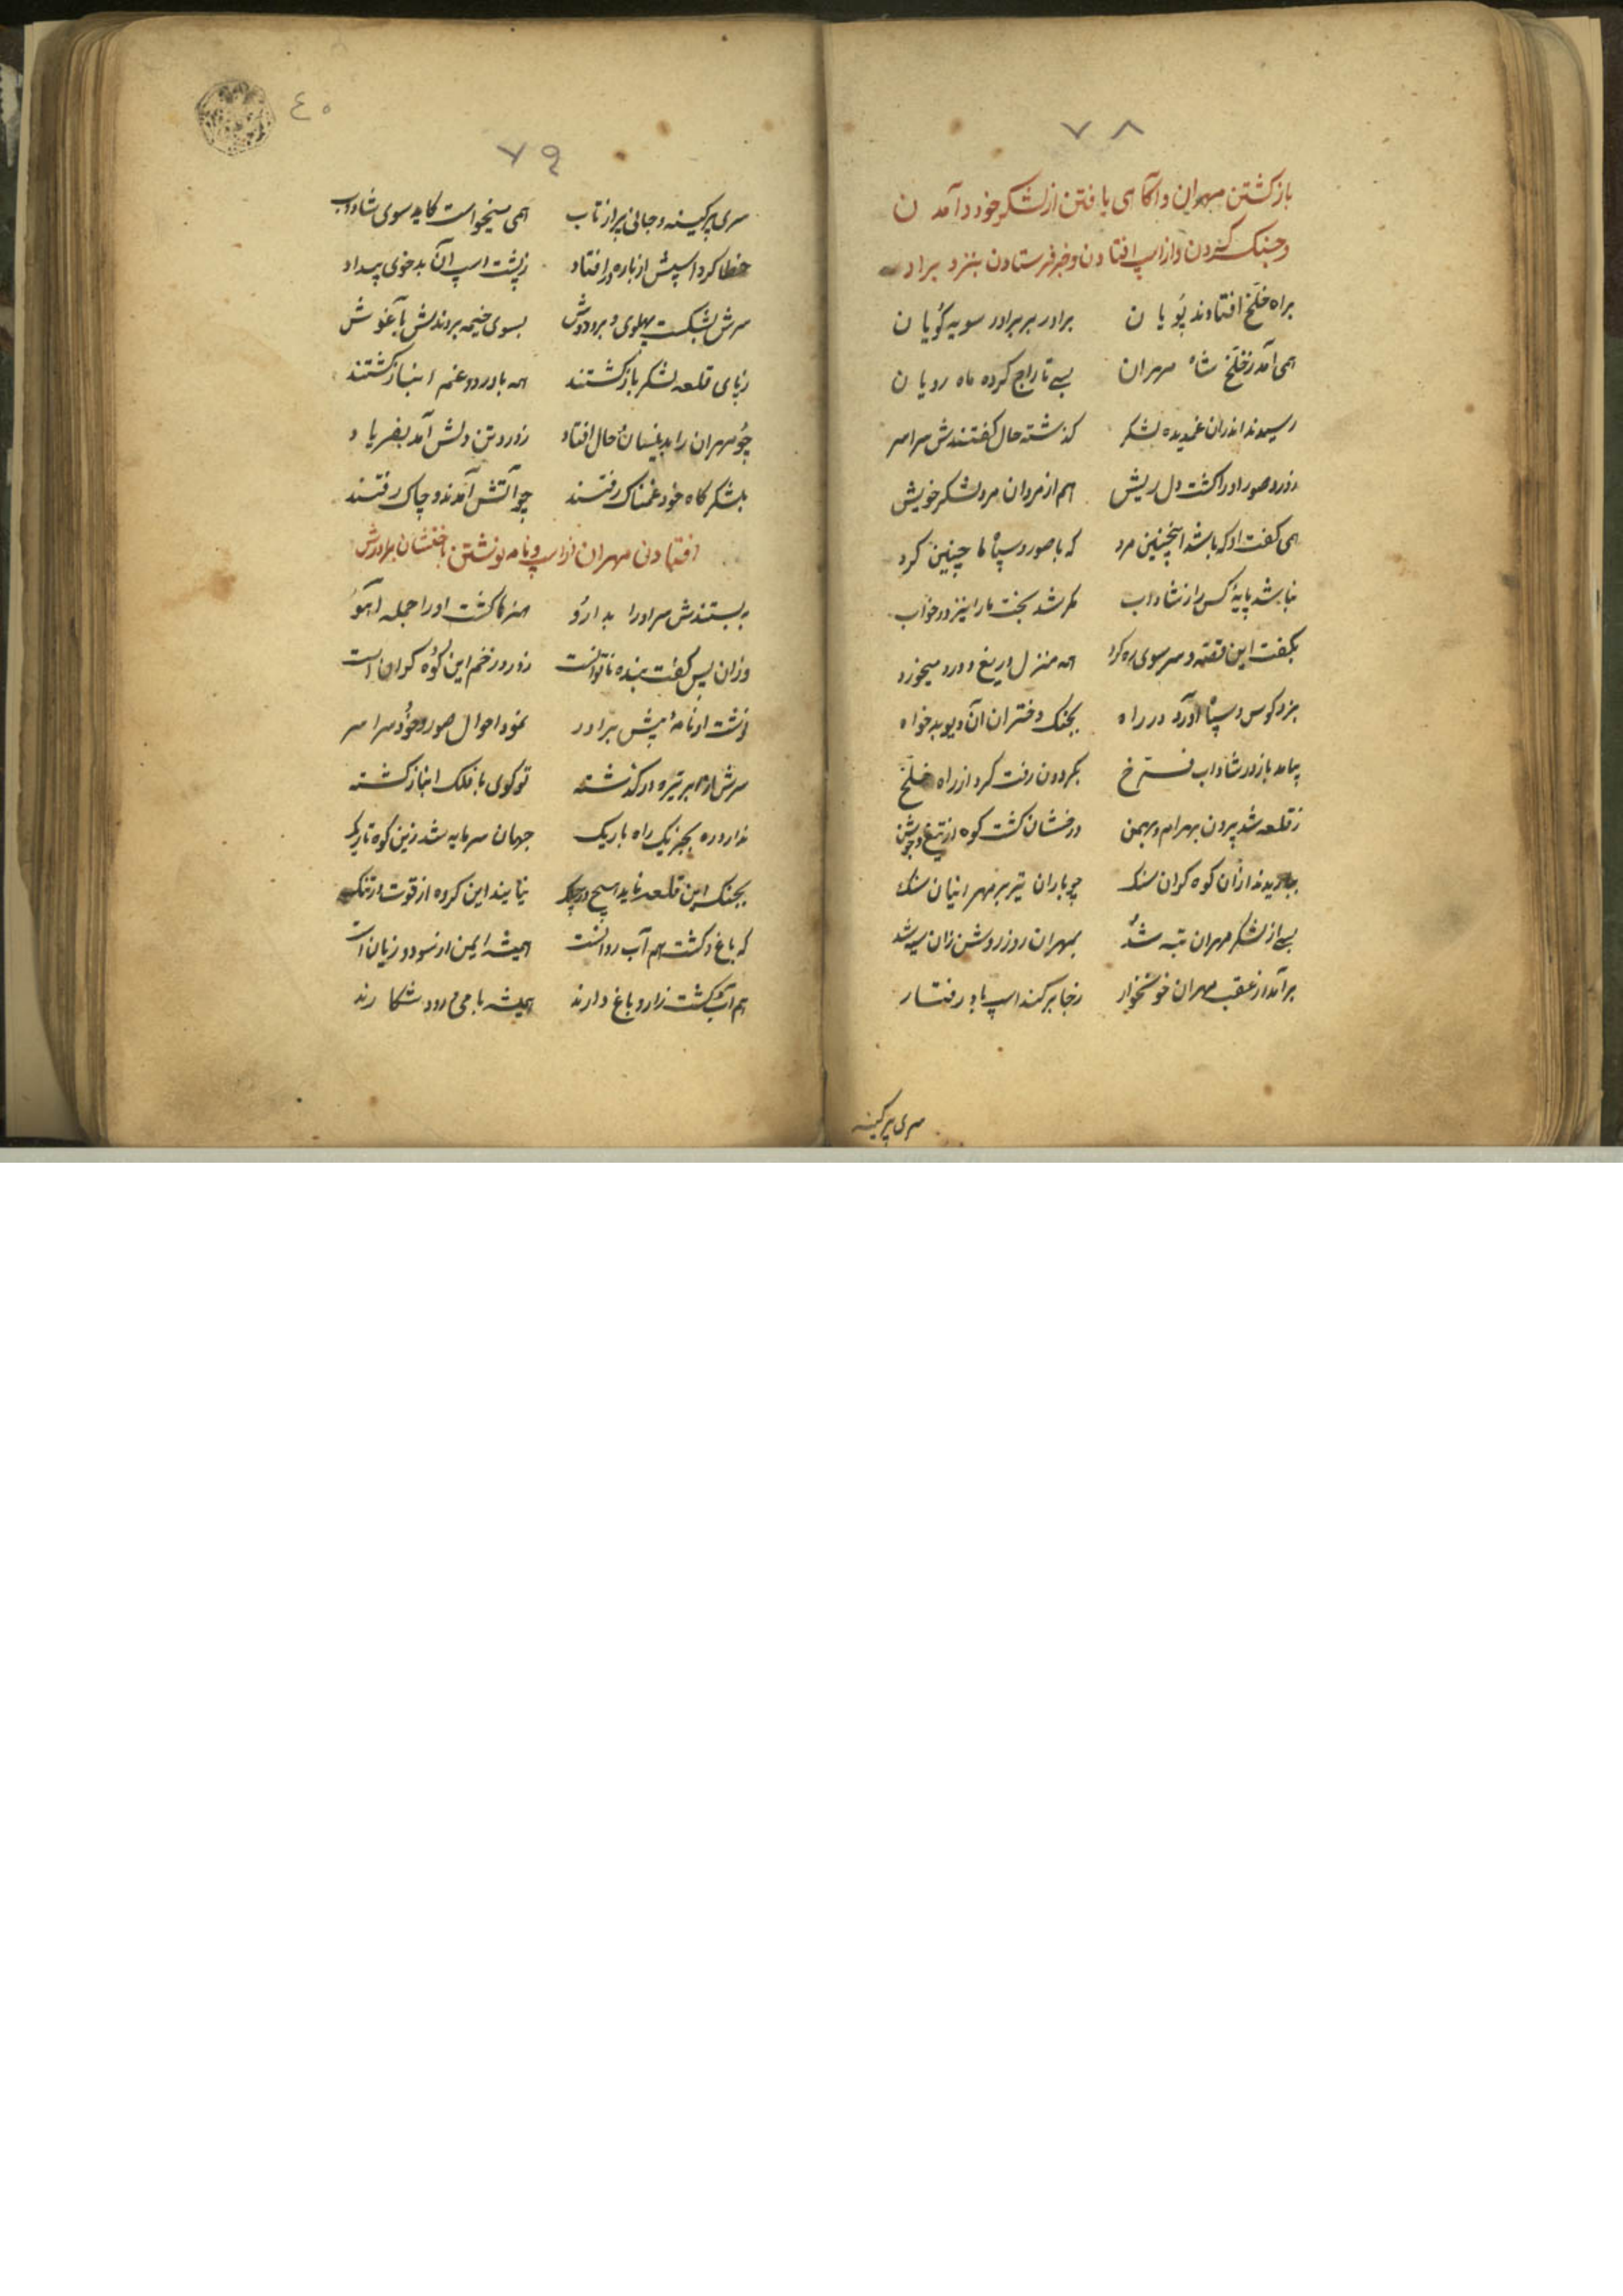 ۷۸
بازکشتن مهران و آکاهی یافتن از لشکر خود و آمدن
و جنک کردن و از اسپ افتادن و خبر فرستادن بنزد برادر
براه خلخ افتادند پویان برادر بر برادر مویه کویان
همی آمد ز خلخ شاه مهران بسی تاراج کرده ماه رویان
رسیدند اندران غمدیده لشکر کذشته حال کفتندش سراسر
ز درد صور او را کشت دل ریش هم از مردان مرد لشکر خویش
همی کفت او که باشد اینچنین مرد که با صور و سپاه ما چنین کرد
نباشد پایهٔ کس را ز شاداب مکر شد بخت ما را نیز در خواب
بکفت این قصه و سر سوی ره کرد همه منزل دریغ و درد میخورد
بزد کوس و سپاه آورد در راه بجنک دختران آن دیو بدخواه
بیامد باز در شاداب فرخ بکردون رفت کرد از راه خلخ
ز قلعه شد برون بهرام و بهمن درخشان کشت کوه از تیغ و جوشن
بباریدند ازان کوه کران سنک چو باران تیر بر مهرانیان تنک
بسی از لشکر مهران تبه شد بمهران روز روشن زان سیه شد
برآمد از عقب مهران خونخوار ز جا برکند اسپ باد رفتار
سری پرکینه
٤٠
۷۹
سری پرکینه و جانی پر از تاب همی میخواست کاید سوی شاداب
خطا کرد اسپش از باره در افتاد ز پشت اسپ آن بدخوی بیداد
سرش بشکست پهلوی و بر و دوش بسوی خیمه بردندش بآغوش
ز پای قلعه لشکر بازکشتند همه با درد و غم انبازکشتند
چو مهران را بدینسان حال افتاد ز درد تن دلش آمد بفریاد
بلشکرکاه خود غمناک رفتند چو آتش آمدند و چاک رفتند
افتادن مهران از اسپ و نامه نوشتن باخفشان برادرش
ببستندش سر او را بدارو هنرها کشت او را جمله آهو
وزان پس کفت بنده ناتوانست ز درد زخم این کوه کرانست
نوشت او نامهٔ پیش برادر نمود احوال صور و خود سراسر
سرش از ابر تیره درکذشته تو کوی با فلک انبازکشته
ندارد ره بجز یک راه باریک جهان سرمایه شد زین کوه تاریک
بجنک این قلعه ناید هیچ در چنک نیایند این کروه از قوت در تنک
که باغ و کشت هم آب روانست همیشه ایمن از سود و زیانست
هم آب و کشت زار و باغ دارند همیشه با می و رود و شکارند